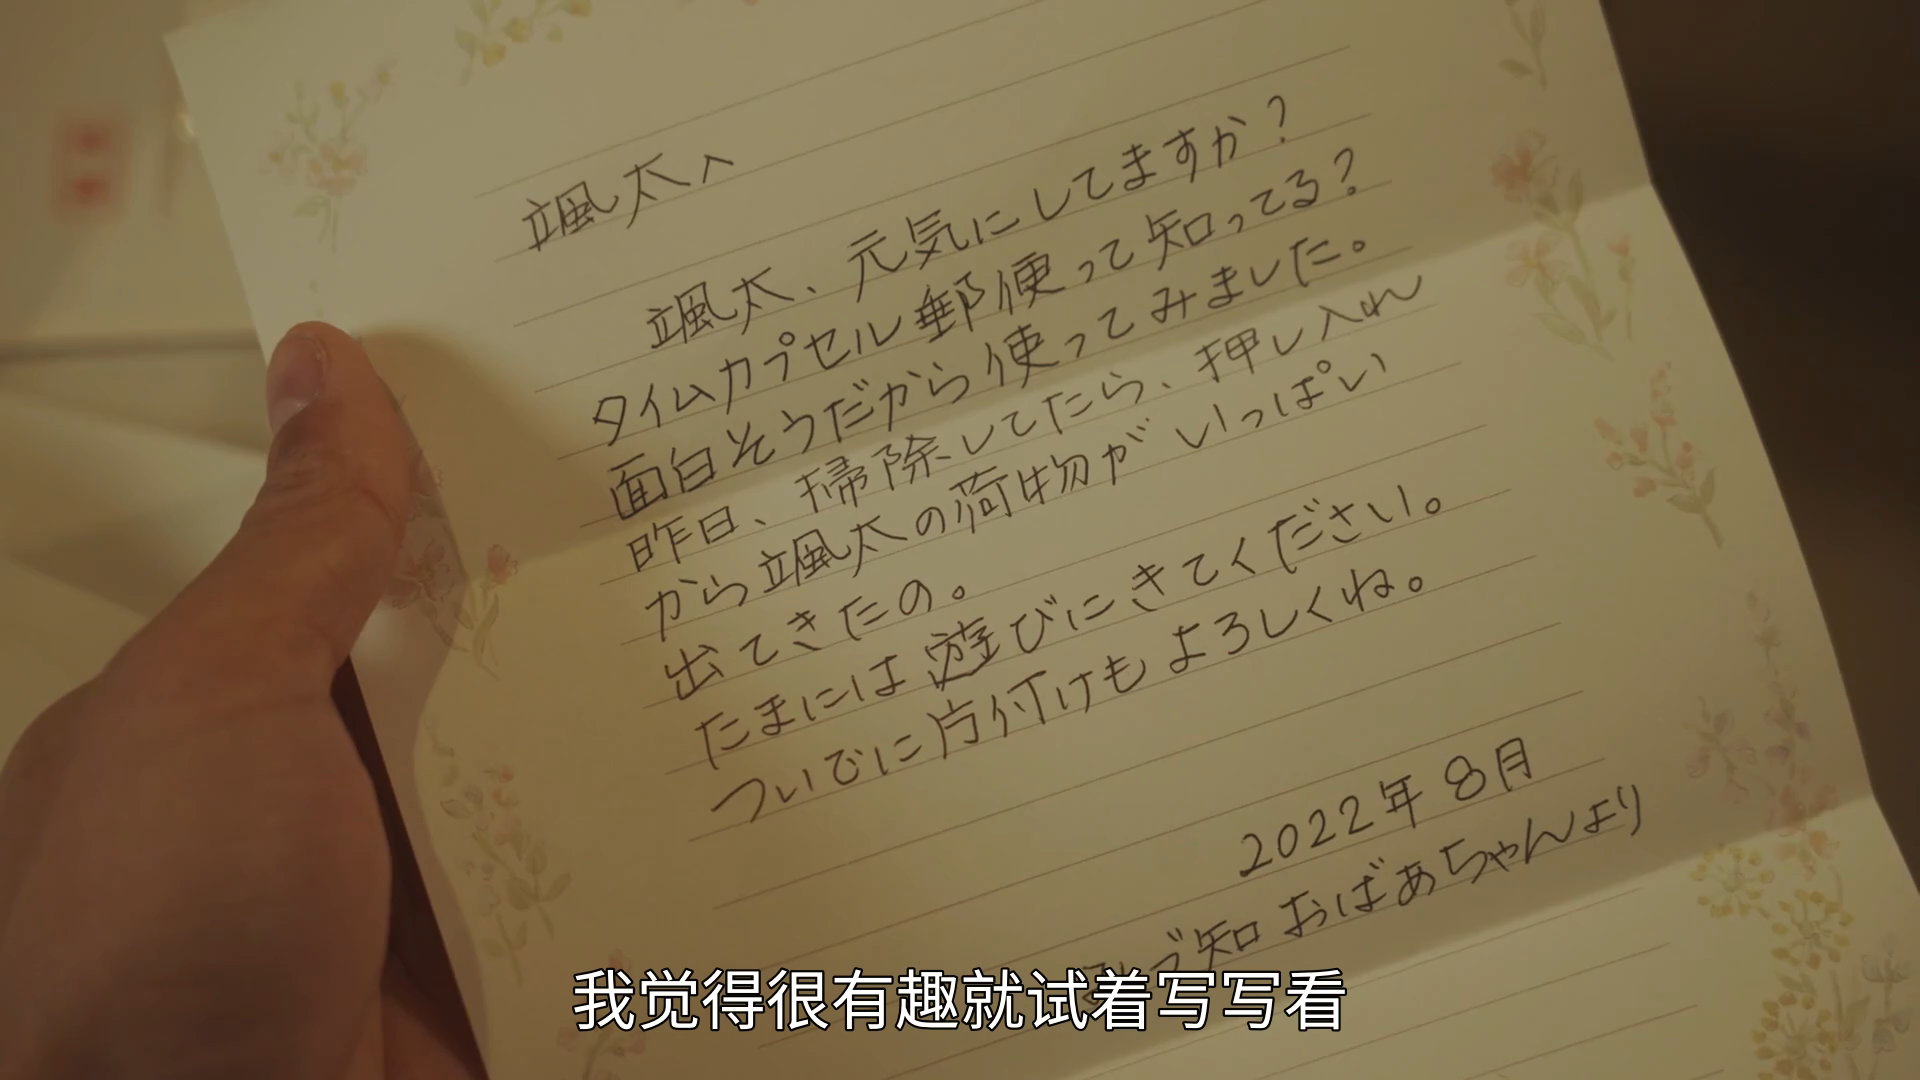 颯太へ
颯太、元気にしてますか?
タイムカプセル郵便って知ってる?
面白そうだから使ってみました。
昨日、掃除してたら、押し入れ
から颯太の荷物がいっぱい
出てきたの。
たまには遊びにきてください。
ついでに片付けもよろしくね。
2022年8月
知おばあちゃんより
我觉得很有趣就试着写写看